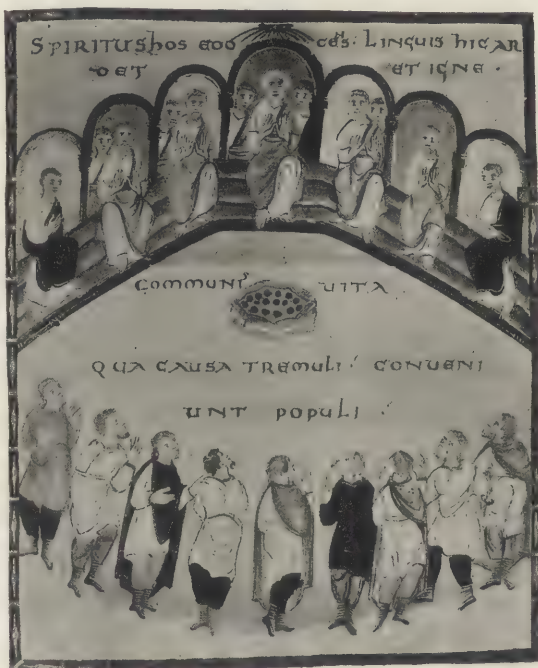 SPIRITUS hOS EDO CES· LINGUIS hIC AR
DET ET IGNE ·
COMMUNIS UITA
QUA CAUSA TREMULI CONUENI
UNT POPULI